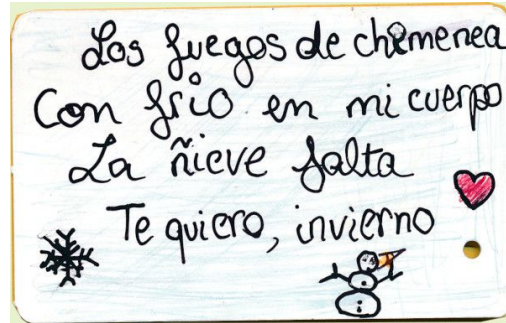 Los fuegos de chimenea
Con frio en mi cuerpo
La ñieve falta
Te quiero, invierno